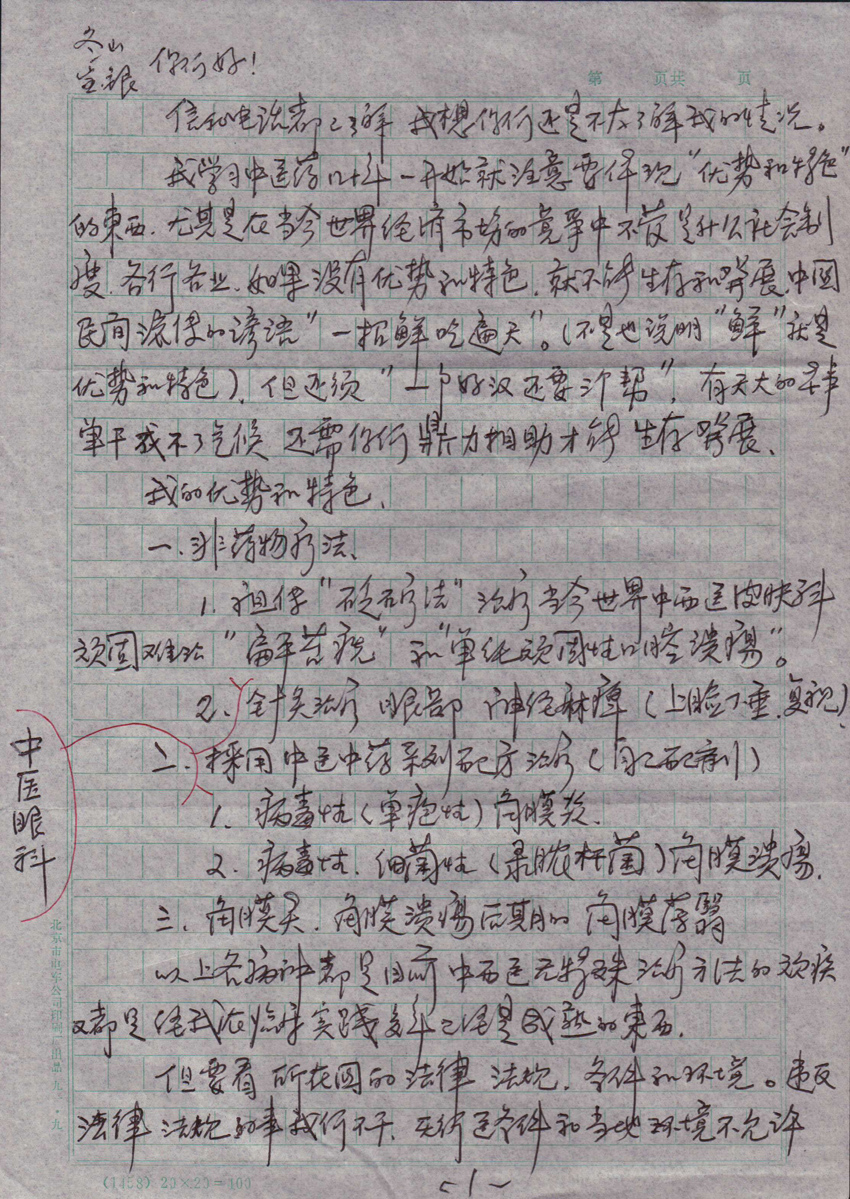 冬山
你们好!
第 页共 页
信和电话都已了解 我想你们还是不太了解我的情况。
我学习中医药几十年 一开始就注意要体现"优势和特色"
的東西.尤其是在当今世界经济市场的竞争中不管是什么社会制
度.各行各业.如果没有优势和特色.就不能生存和发展.中国
民间流传的谚语"一招鲜吃遍天"。(不是也说明"鲜"就是
优势和特色).但还须"一个好汉还要三个帮".有天大的本事
单干成不了气候 还需你们鼎力相助才能生存发展、
我的优势和特色、
一.非药物疗法、
1.祖传"砭石疗法"治疗当今世界中西医皮肤科
顽固难治"扁平苔癣"和"单纯顽固性口腔溃疡"。
2.针灸治疗 眼部 神经麻痹(上睑下垂.复视)
二.採用中医中药系列配方治疗(自己配制)
中医眼科
1.病毒性(单疱性)角膜炎.
2.病毒性.细菌性(绿脓杆菌)角膜溃疡.
三.角膜炎.角膜溃疡后期的 角膜薄翳
以上各病种都是目前中西医无特殊治疗方法的顽疾
又都是经我在临床实践多年已经是成熟的東西.
但要看所在国的法律 法规.条件和环境。违反
法律 法规的事我们不干、行医条件和当地环境不允许
(1458) 20×20=400
-1-